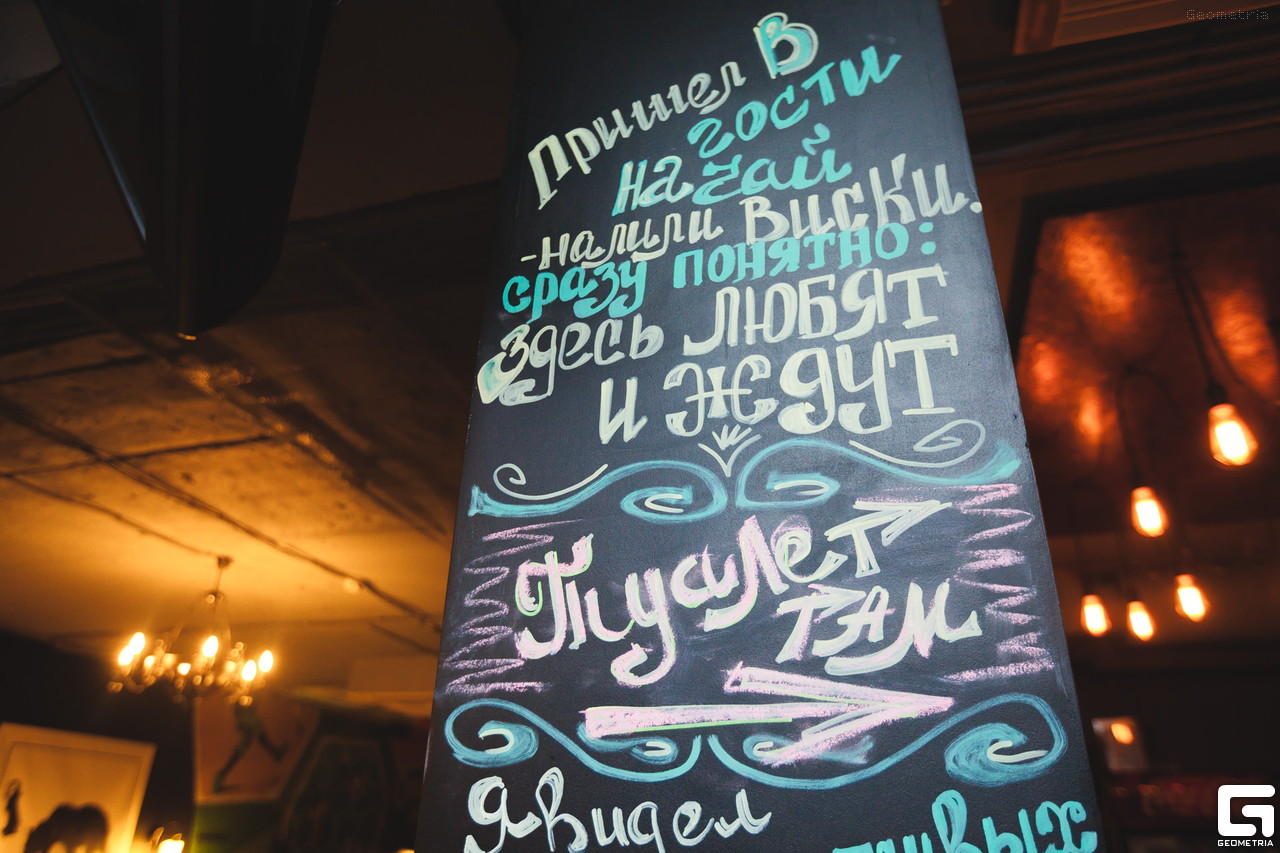 Geometria
Пришел В
гости
на чай
-налили виски.
сразу понятно:
здесь ЛЮБЯТ
и ЖДУТ
Туалет
там
Я видел
GEOMETRIA